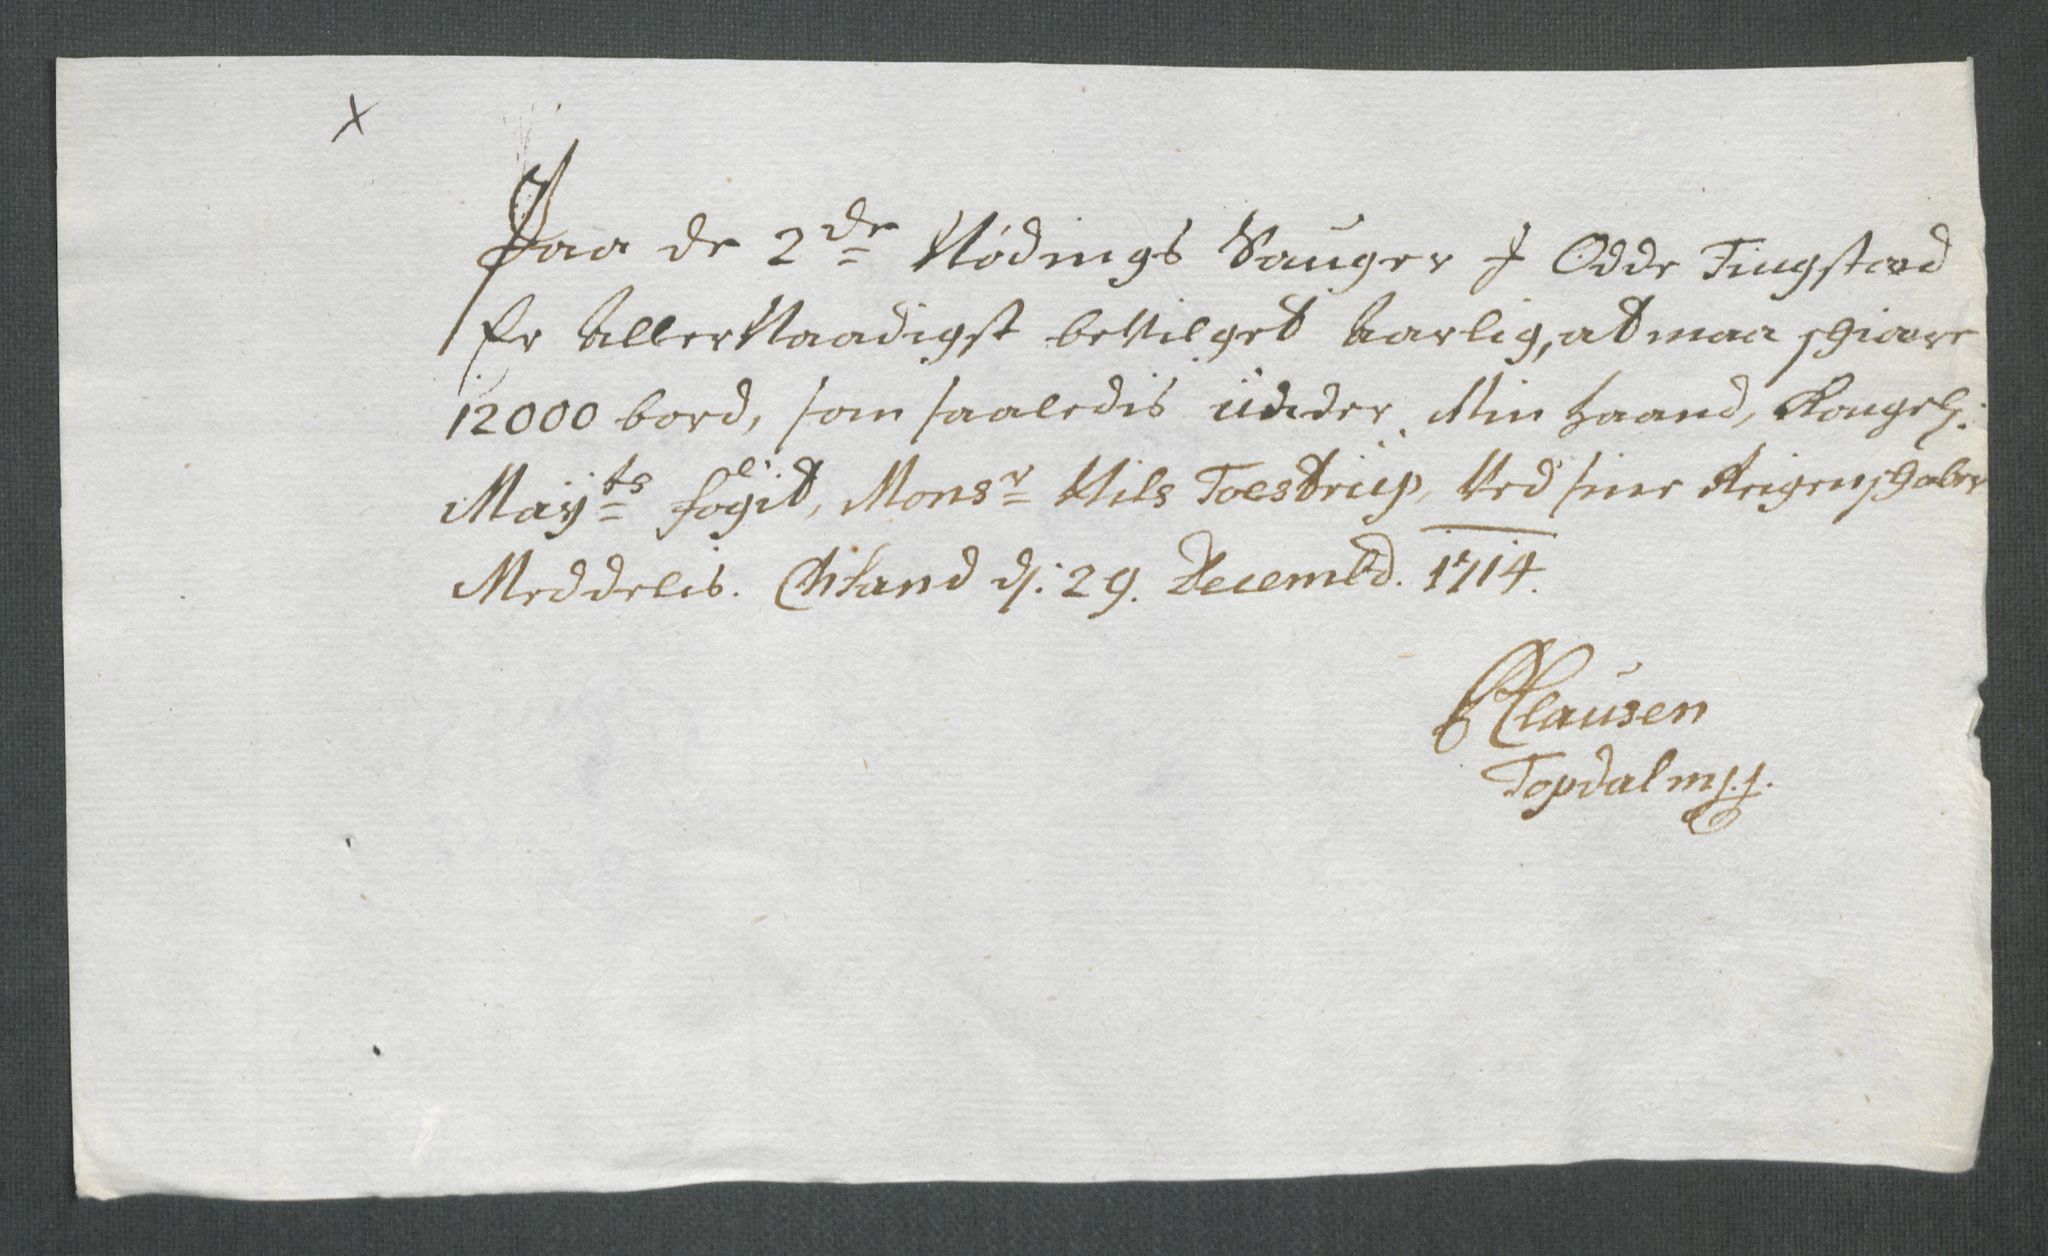 x
Paa de 2de Nödings Sauger J Odde Tingstæd
Er AllerNaadigst beVilget Aarlig, at maa schiære
12000 bord, som saaledis under Min haand, Kongel:
Mayts fogit, Monsr Nils Toestrup, Ved sine Reigenschaber
Meddelis. ChSand dj: 29. Decembd. 1714.
Clausen
Topdal mpp.